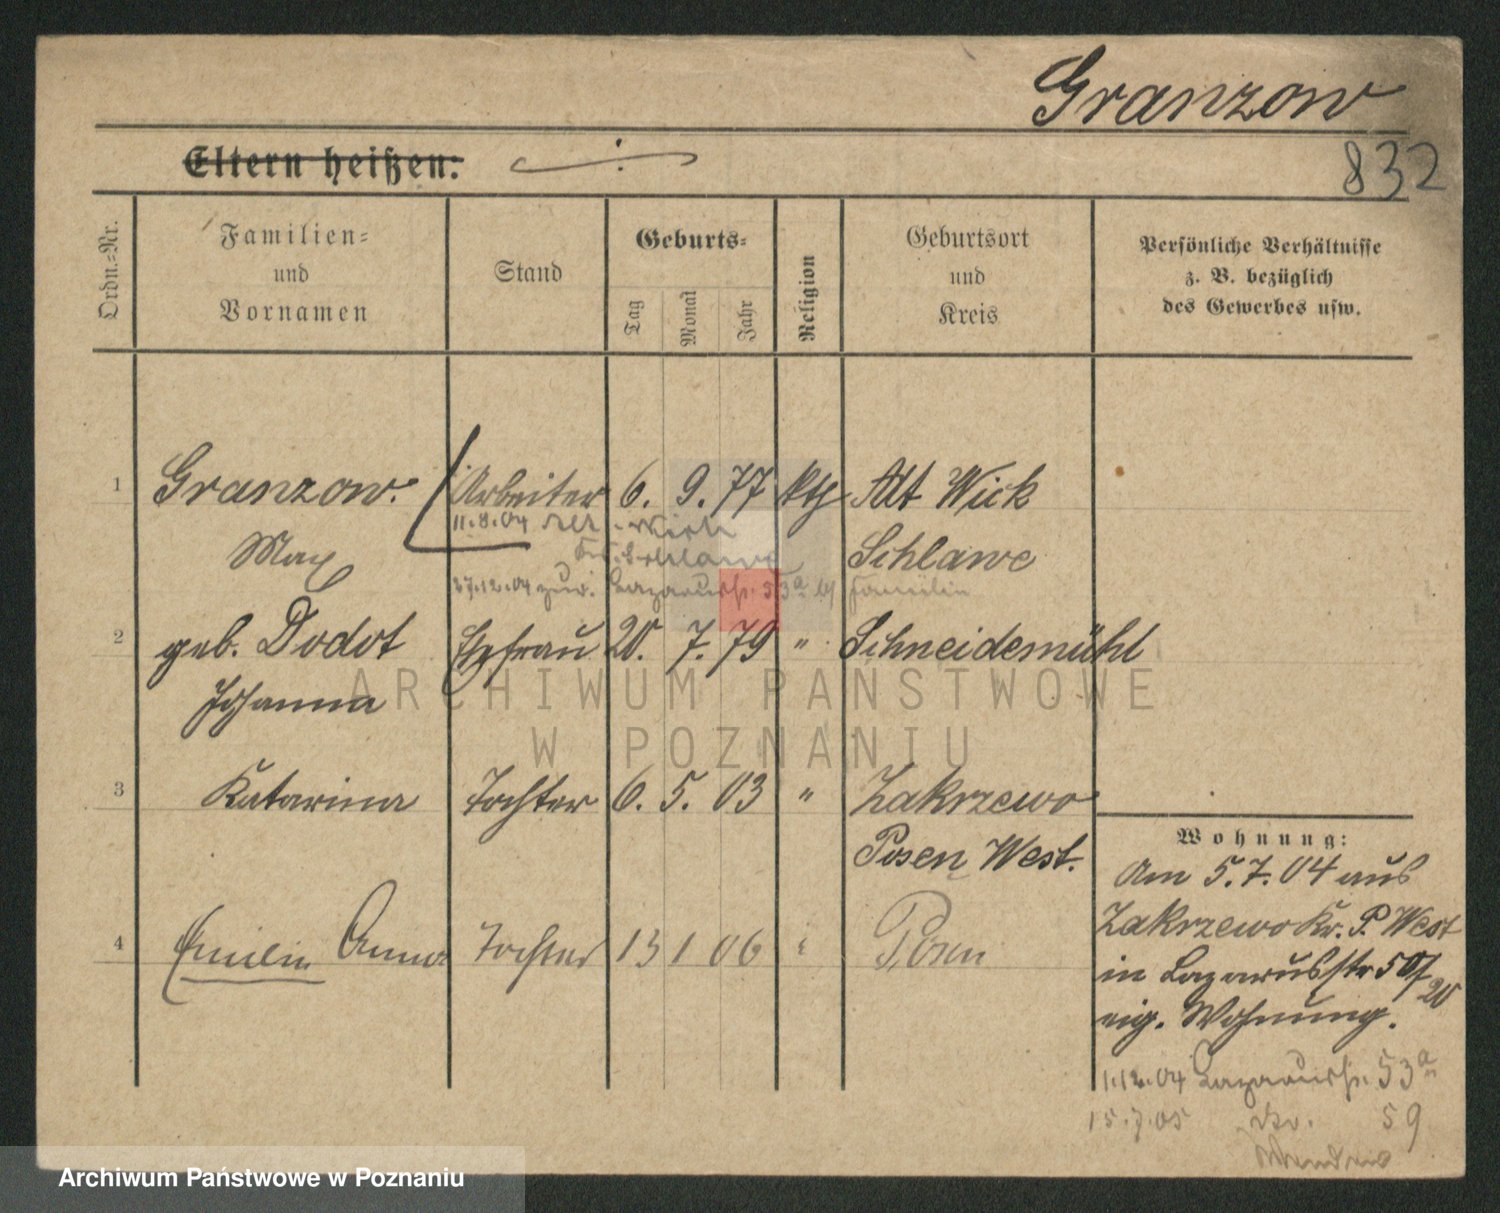 Granzow
832
Eltern heißen: ./.
Ordn.-Nr.
Familien-
und
Vornamen
Stand
Geburts-
Tag
Monat
Jahr
Religion
Geburtsort
und
Kreis
Persönliche Verhältnisse
z. B. bezüglich
des Gewerbes usw.
1 Granzow. Arbeiter 6. 9. 77 kth Alt Wiek
11.8.04 Alt-Wiek
Max Schlawe
Kr. Schlawe
27.12.04 zur. Lazarusstr. 53a Familie
2 geb. Dodot Ehefrau 20. 7. 79 " Schneidemühl
Johanna
3 Katarina Tochter 6. 5. 03 " Zakrzewo
Posen West.
4 Emilie Anna Tochter 13 1 06 " Posen
Wohnung:
Am 5.7.04 aus
Zakrzewo Kr. P. West
in Lazarusstr 50/20
eig. Wohnung.
1.12.04 Lazarusstr. 53a
15.7.05 59
ARCHIWUM PAŃSTWOWE
W POZNANIU
Archiwum Państwowe w Poznaniu